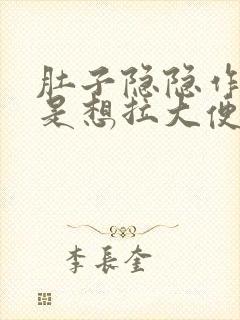 肚子隐隐作
是想拉大便
李長奎